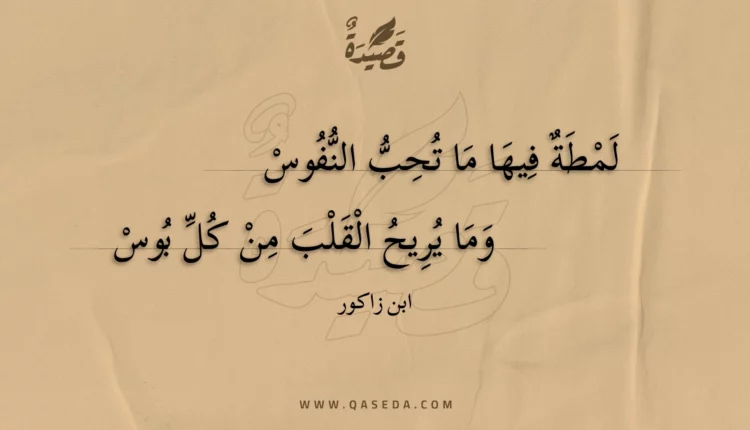 قَصِيدَةٌ
لَمْطَةٌ فِيهَا مَا تُحِبُّ النُّفُوسْ
وَمَا يُرِيحُ الْقَلْبَ مِنْ كُلِّ بُوسْ
ابن زاكور
WWW.QASEDA.COM